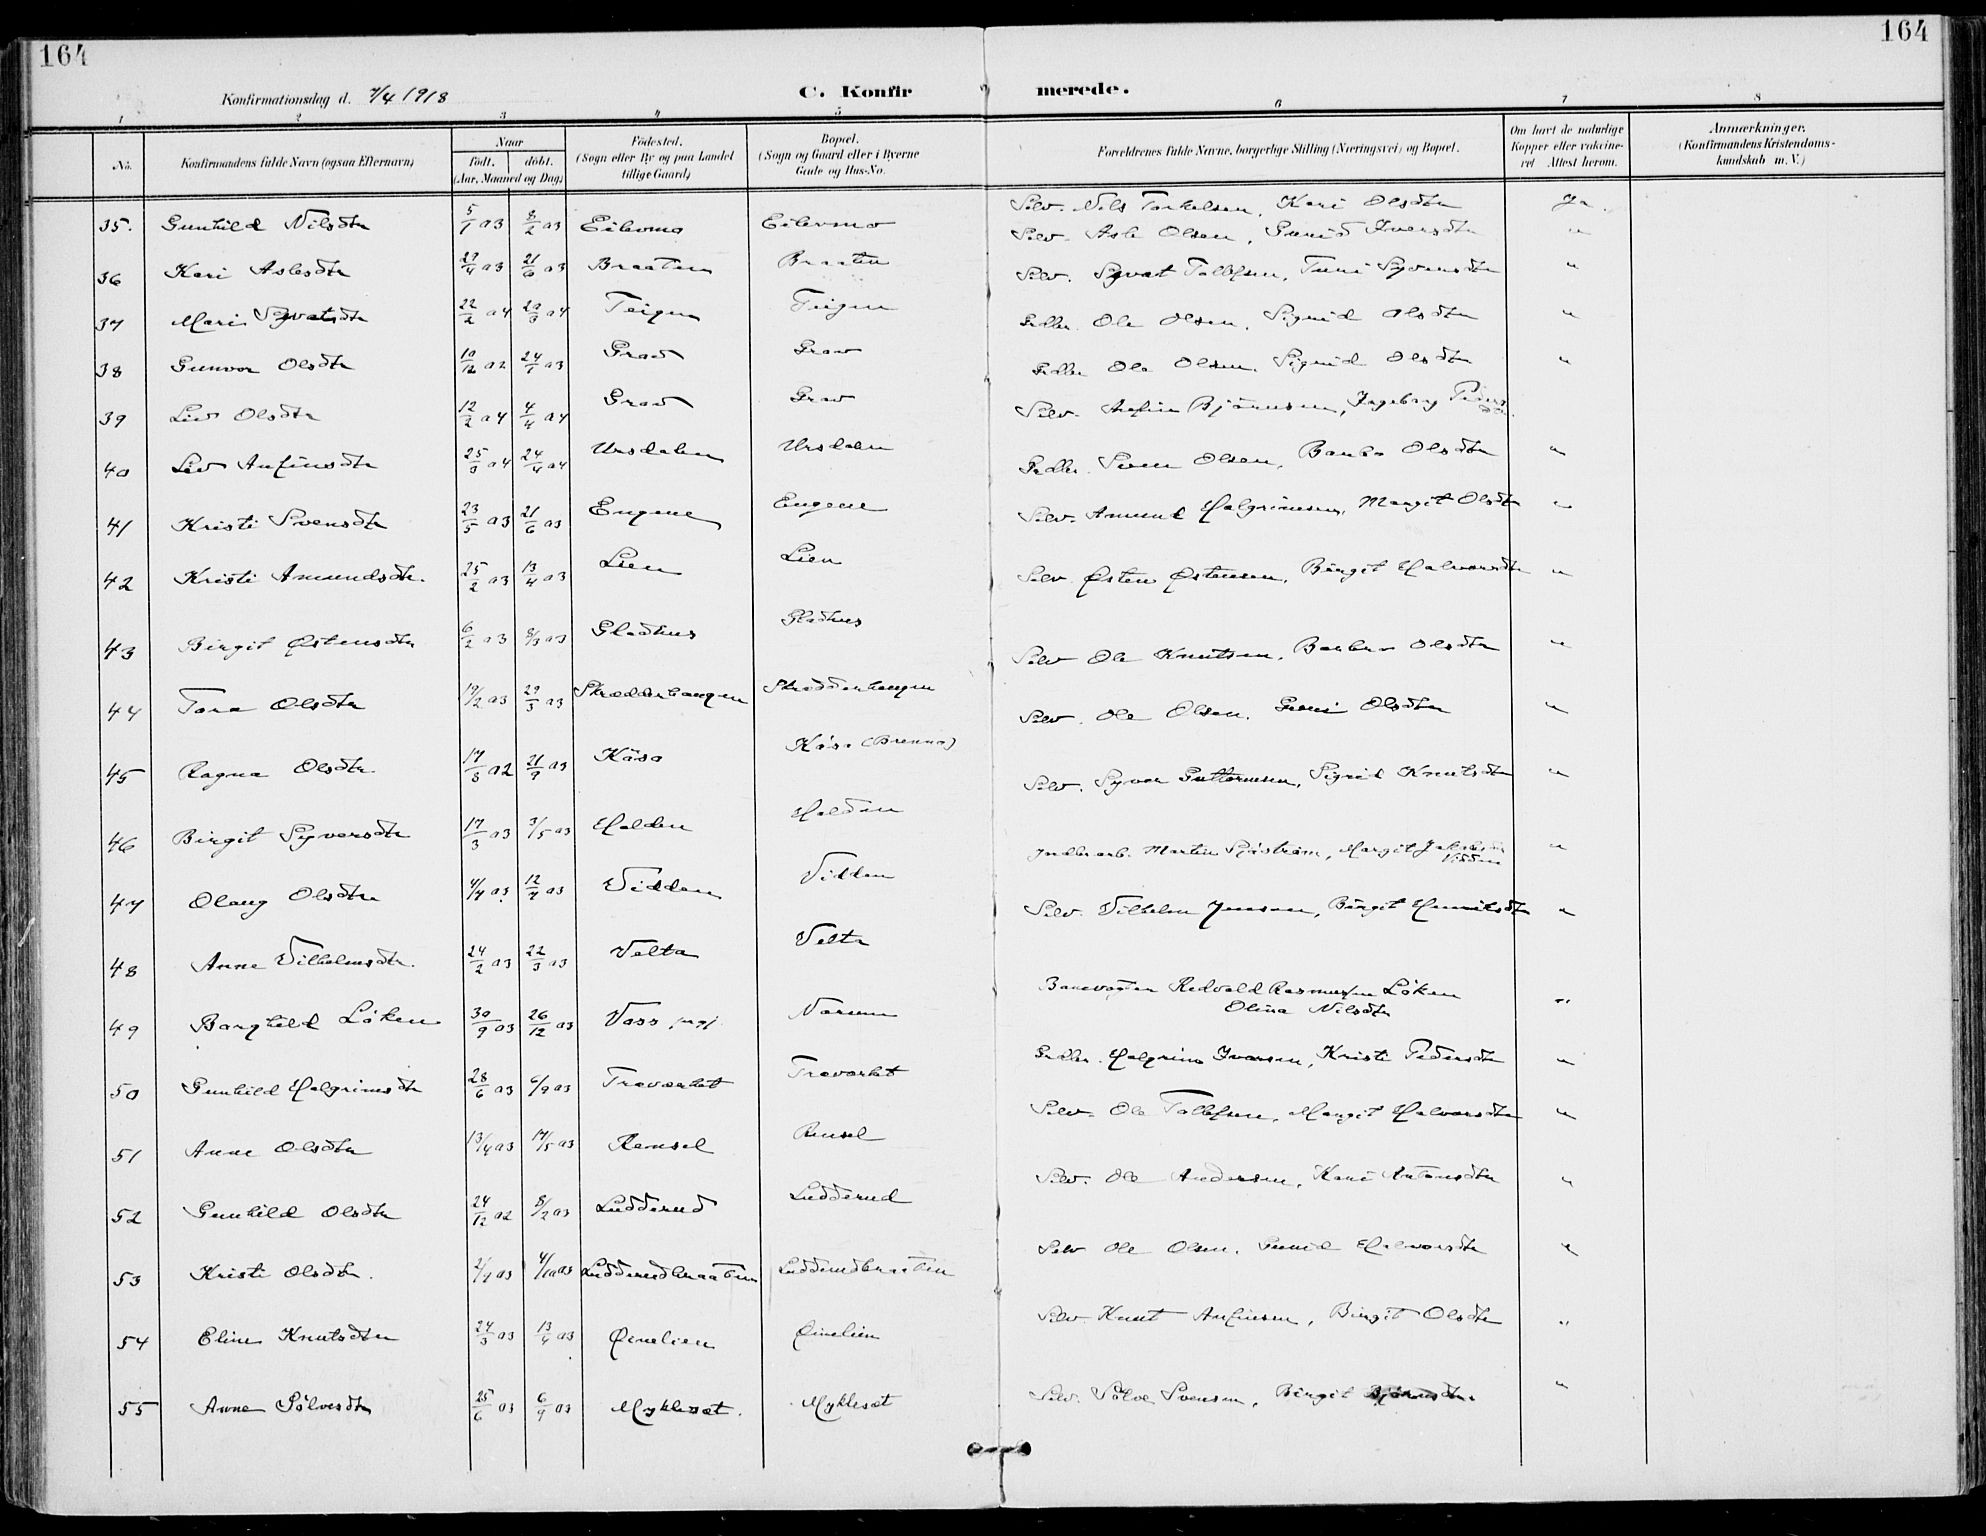 164
164
Konfirmationsdag d. 7/4 1918
C. Konfir merede.
1 2 3 4 5 6 7 8
No. Konfirmandens fulde Navn (ogsaa Efternavn) Naar født. døbt. (Aar, Maaned og Dag) Fødested. (Sogn eller By og paa Landet tillige Gaard) Bopæl. (Sogn og Gaard eller i Byerne Gade og Hus-No. Forældrenes fulde Navne, borgerlige Stilling (Næringsvei) og Bopæl. Om havt de naturlige Kopper eller vakcineret Attest herom. Anmærkninger. (Konfirmandens Kristendomskundskab m. V.)
35. Gunhild Nilsdtr 5/1 03 8/2 03 Eilevmo Eilevmo Selv. Nils Torkelsen, Kari Olsdtr Ja.
36 Kari Aslesdtr 27/4 03 21/6 03 Braaten Braaten Selv. Asle Olsen, Gunid Iversdtr "
37 Mari Syvatsdtr 22/2 04 20/3 04 Teigen Teigen Selv. Syvat Tollefsen, Turi Syversdtr "
38 Gunvor Olsdtr 10/12 02 24/1 03 Grav Grav Gdbr. Ole Olsen, Sigrid Olsdtr "
39 Liv Olsdtr 12/2 04 4/4 04 Grav Grav Gdbr Ole Olsen, Sigrid Olsdtr "
40 Liv Anfinsdtr 25/3 04 24/4 04 Ursdalen Ursdalen Selv. Anfin Bjørnsen, Ingeborg Peders dtr. "
41 Kristi Svensdtr 23/5 03 21/6 03 Engene Engene Gdbr. Sven Olsen, Barbro Olsdtr "
42 Kristi Amundsdtr. 25/2 03 13/4 03 Lien Lien Selv. Amund Halgrimsen, Margit Olsdtr "
43 Birgit Østensdtr 6/2 03 8/3 03 Gladhus Gladhus Selv Østen Østensen, Birgit Halvorsdtr "
44 Tora Olsdtr 19/2 03 29/3 03 Skradderhaugen Skradderhaugen Selv Ole Knutsen, Barbro Olsdtr "
45 Ragna Olsdtr. 17/3 02 21/9 03 Kåsa Kåsa (Brenna) Selv. Ole Olsen. Guri Olsdtr "
46 Birgit Syversdtr 17/3 03 3/5 03 Halden Halden Selv. Syver Guttormsen, Sigrid Knutsdtr "
47 Olaug Olsdtr 4/4 03 12/7 03 Vidden Vidden Jndbrarb. Martin Sjøstrøm, Margit Jakobsdtr Vidden "
48 Anne Vilhelmsdtr. 24/2 03 22/3 03 Velta Velta Selv. Vilhelm Jensen, Birgit Henriksdtr "
49 Borghild Løken 30/9 03 26/12 03 Voss prgj. Norum Banevogter Redvald Rasmussen Løken
Olina Nilsdtr "
50 Gunhild Halgrimsdtr 28/6 03 6/9 03 Træværket Træværket Gdbr. Halgrim Iversen, Kristi Pedersdtr "
51 Anne Olsdtr 13/4 03 17/5 03 Rensel Rensel Selv. Ole Tollefsen, Margit Halvorsdtr "
52 Gunhild Olsdtr 24/12 02 8/2 03 Ludderud Ludderud Selv. Ole Andersen, Kari Antonsdtr "
53 Kristi Olsdtr. 2/7 03 4/10 03 Ludderudbraaten Ludderudbraaten Selv Ole Olsen, Gunid Halvorsdtr "
54 Eline Knutsdtr 24/3 03 13/4 03 Øinelien Øinelien Selv Knut Anfinsen, Birgit Olsdtr "
55 Anne Sølvesdtr 25/6 03 6/9 03 Myklesæt. Myklesæt Selv. Sølve Svensen, Birgit Bjørnsdtr. "